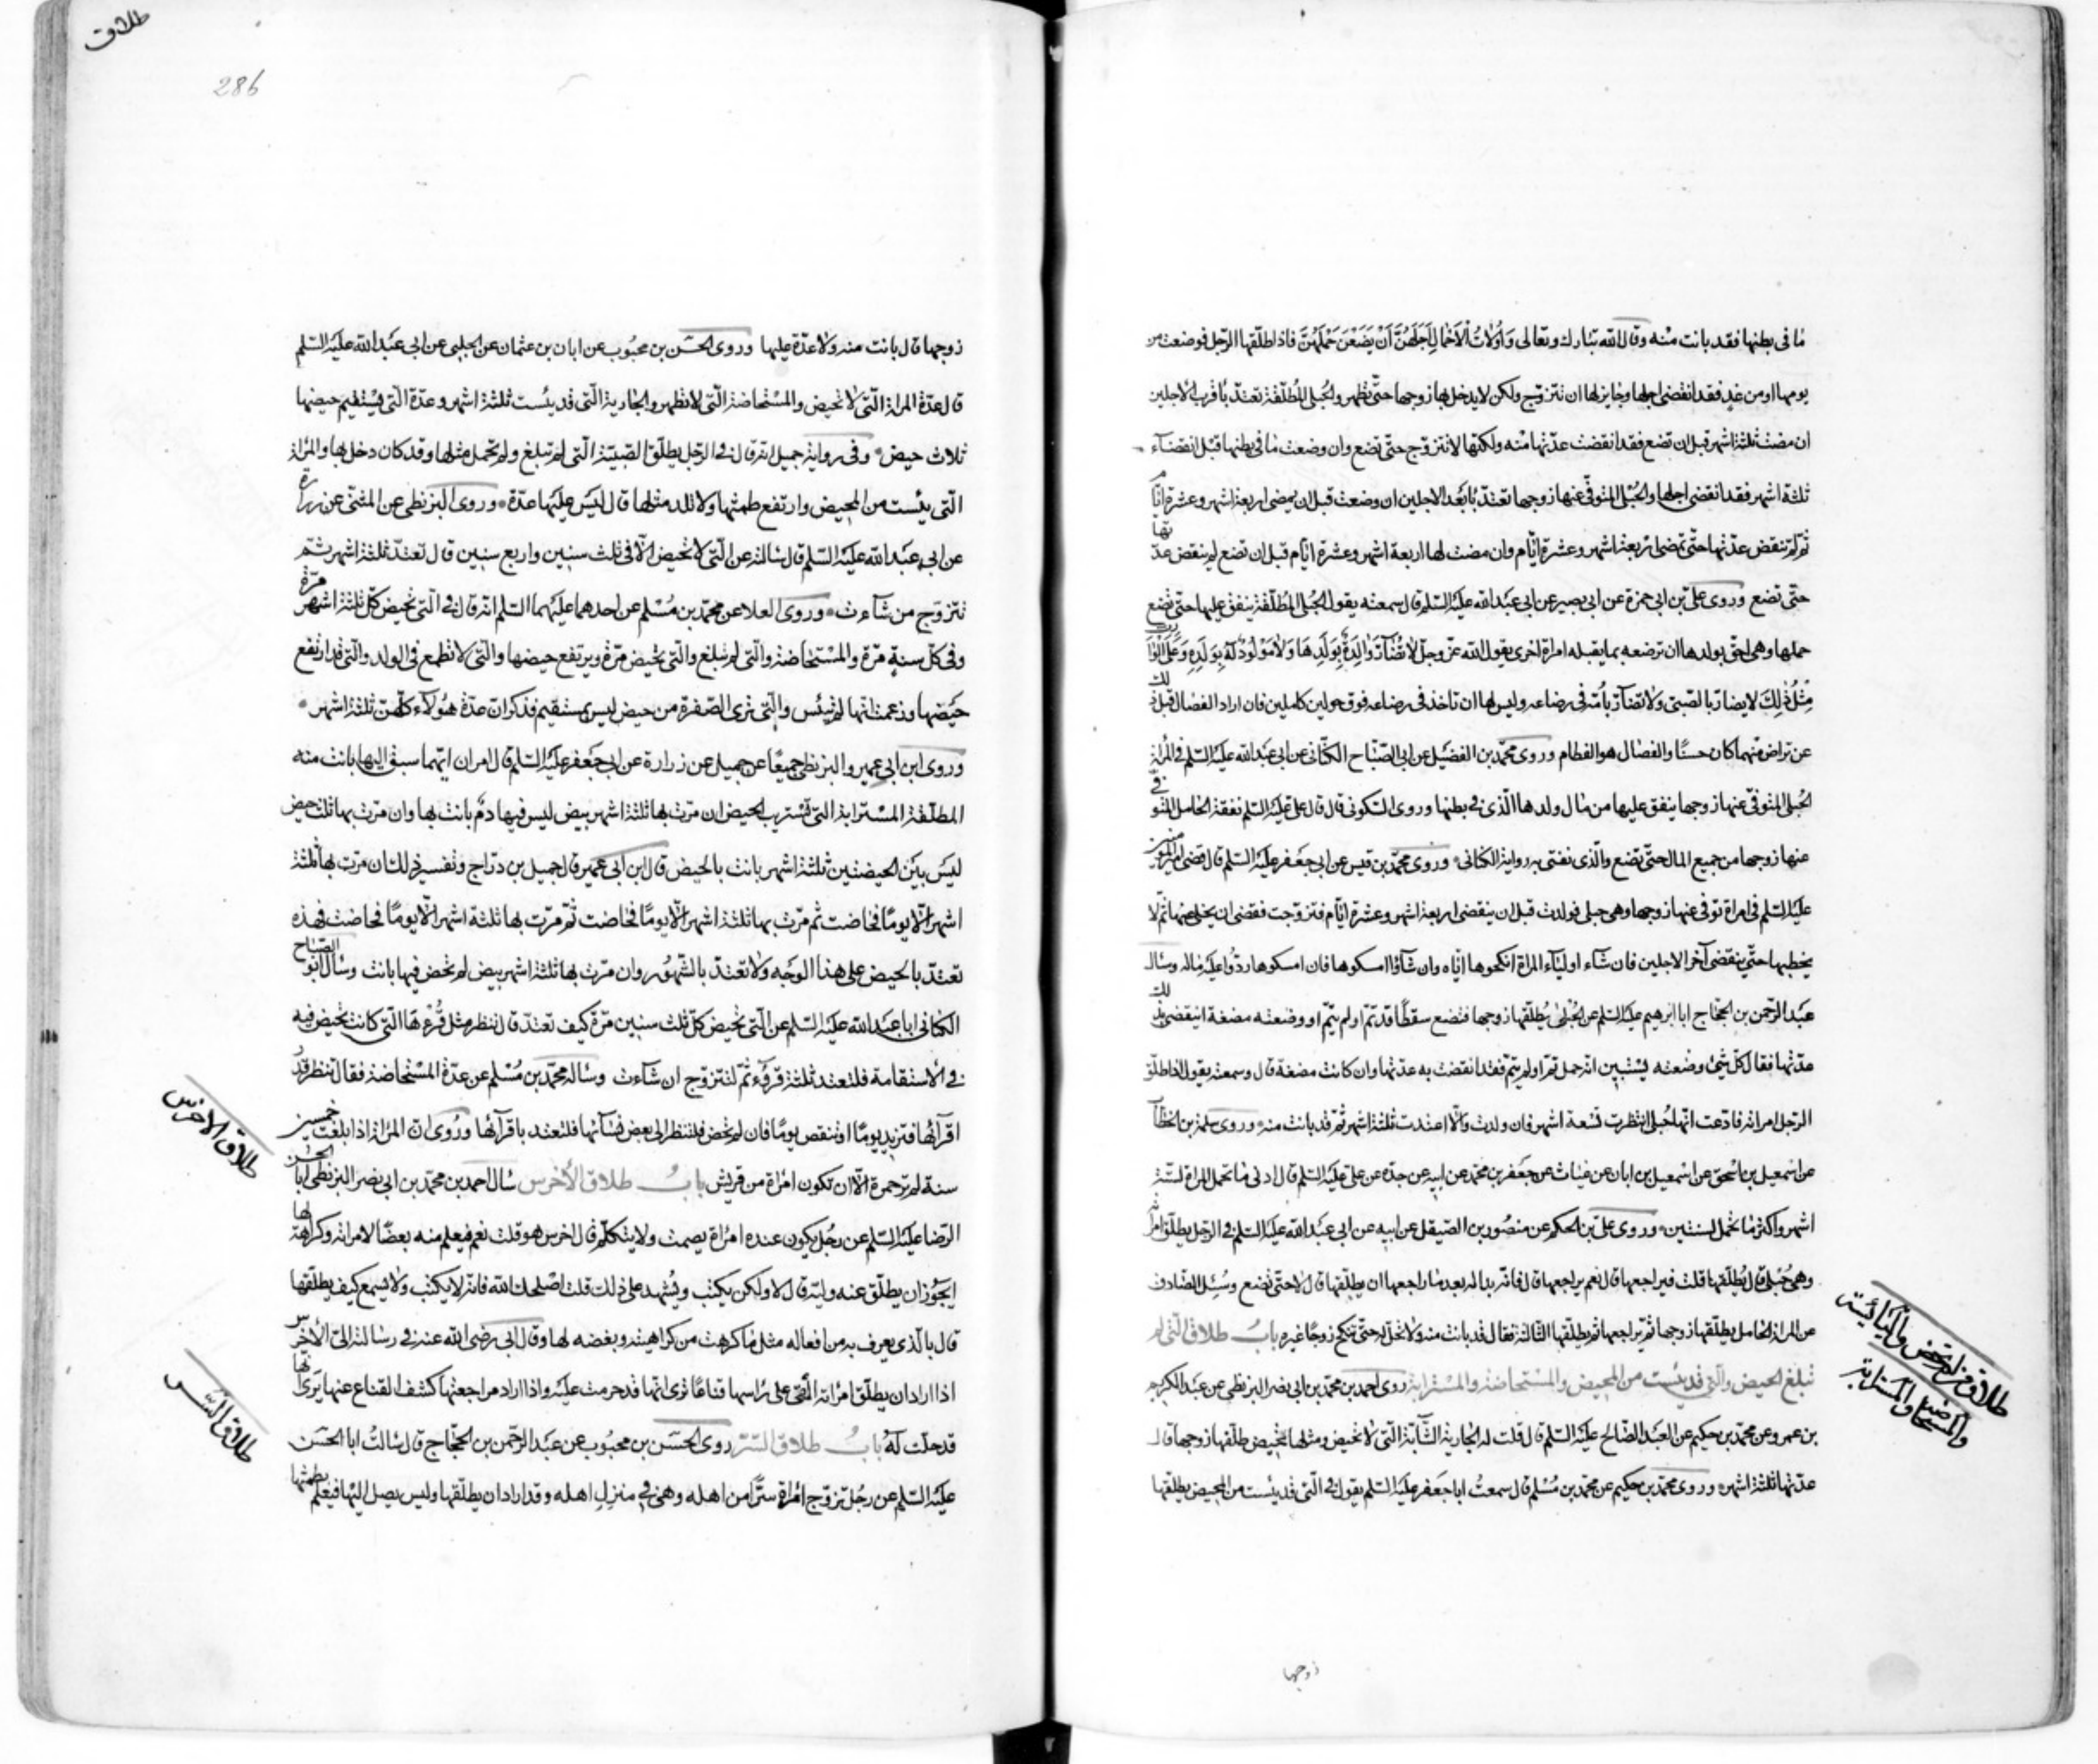 ما فى بطنها فقد بانت منه وقال الله تبارك وتعالى وَأُولَاتُ الْأَحْمَالِ أَجَلُهُنَّ أَنْ يَضَعْنَ حَمْلَهُنَّ فاذا طلقها الرجل فوضعت من
يومها او من غد فقد انقضى اجلها وجايز لها ان تتزوج ولكن لا يدخل بها زوجها حتى تطهر والحبلى المطلقة تعتد باقرب الاجلين
ان مضت ثلثة اشهر قبل ان تضع فقد انقضت عدتها منه ولكنها لا تتزوج حتى تضع وان وضعت ما فى بطنها قبل انقضآء
ثلثة اشهر فقد انقضى اجلها والحبلى المتوفى عنها زوجها تعتد بابعد الاجلين ان وضعت قبل ان يمضى اربعة اشهر وعشرة ايام
لم تنقض عدتها حتى تمضى اربعة اشهر وعشرة ايام وان مضت لها اربعة اشهر وعشرة ايام قبل ان تضع لم ينقض عدتها
حتى تضع وروى على بن ابى حمزة عن ابى بصير عن ابى عبد الله عليه السلم قال سمعته يقول الحبلى المطلقة ينفق عليها حتى تضع
حملها وهى احق بولدها ان ترضعه بما يقبله امراة اخرى يقول الله عز وجل لَا تُضَآرَّ وَالِدَةٌ بِوَلَدِهَا وَلَا مَوْلُودٌ لَهُ بِوَلَدِهِ وَعَلَى الْوَارِثِ
مِثْلُ ذٰلِكَ لا يضار بالصبى ولا تضآر بأمه فى رضاعه وليس لها ان تاخذ فى رضاعه فوق حولين كاملين فان اراد الفصال قبل ذلك
عن تراض منهما كان حسنًا والفصال هو الفطام وروى محمد بن الفضيل عن ابى الصباح الكنانى عن ابى عبد الله عليه السلم فى المراة
الحبلى المتوفى عنها زوجها ينفق عليها من مال ولدها الذى فى بطنها وروى السكونى قال قال على عليه السلم نفقة الحامل المتوفى
عنها زوجها من جميع المال حتى تضع والذى نفتى به رواية الكنانى وروى محمد بن قيس عن ابى جعفر عليه السلم قال قضى امير المؤمنين
عليه السلم فى امراة توفى عنها زوجها وهى حبلى فولدت قبل ان ينقضى اربعة اشهر وعشرة ايام فتزوجت فقضى ان يخلى عنها ثم لا
يخطبها حتى ينقضى آخر الاجلين فان شآء اوليآء المراة انكحوها اياه وان شآؤا امسكوها فان امسكوها ردوا عليه ماله وسال
عبد الرحمن بن الحجاج ابا ابرهيم عليه السلم عن الحبلى يطلقها زوجها فتضع سقطًا قد تم او لم يتم او وضعته مضغة اينقضى بذلك
عدتها فقال كل شئ وضعته يستبين انه حمل تم او لم يتم فقد انقضت به عدتها وان كانت مضغة قال وسمعته يقول اذا طلق
الرجل امراته فادعت انها حبلى انتظرت تسعة اشهر فان ولدت والا اعتدت ثلثة اشهر ثم قد بانت منه وروى سلمة بن الخطاب
عن اسمعيل بن اسحق عن اسمعيل بن ابان عن غياث عن جعفر بن محمد عن ابيه عن جده عن على عليه السلم قال ادنى ما تحمل المراة لستة
اشهر واكثر ما تحمل لسنتين وروى على بن الحكم عن منصور بن الصيقل عن ابيه عن ابى عبد الله عليه السلم فى الرجل يطلق امراته
وهى حبلى قال يطلقها قلت فيراجعها قال نعم يراجعها قال فانه بدا له بعد ما راجعها ان يطلقها قال لا حتى تضع وسئل الصادق
عن المراة الحامل يطلقها زوجها ثم يراجعها ثم يطلقها الثالثة فقال قد بانت منه ولا تحل له حتى تنكح زوجًا غيره باب طلاق التى لم
تبلغ الحيض والتى قد يئست من المحيض والمستحاضة والمسترابة روى احمد بن محمد بن ابى نصر البزنطى عن عبد الكريم
بن عمرو عن محمد بن حكيم عن العبد الصالح عليه السلم قال قلت له الجارية الشابة التى لا تحيض ومثلها تحيض طلقها زوجها قال
عدتها ثلثة اشهر وروى محمد بن حكيم عن محمد بن مسلم قال سمعت ابا جعفر عليه السلم يقول فى التى قد يئست من المحيض يطلقها
زوجها
طلاق من لم تحض واليائسة
والمستحاضة والمسترابة
طلاق
286
زوجها قال بانت منه ولا عدة عليها وروى الحسن بن محبوب عن ابان بن عثمان عن الحلبى عن ابى عبد الله عليه السلم
قال عدة المراة التى لا تحيض والمستحاضة التى لا تطهر والجارية التى قد يئست ثلثة اشهر وعدة التى يستقيم حيضها
ثلاث حيض وفى رواية جميل انه قال فى الرجل يطلق الصبية التى لم تبلغ ولم تحمل مثلها وقد كان دخل بها والمراة
التى يئست من المحيض وارتفع طمثها ولا تلد مثلها قال ليس عليها عدة وروى البزنطى عن المثنى عن زرارة
عن ابى عبد الله عليه السلم قال سالته عن التى لا تحيض الا فى ثلث سنين واربع سنين قال تعتد ثلثة اشهر ثم
تتزوج من شآءت وروى العلا عن محمد بن مسلم عن احدهما عليهما السلم انه قال فى التى تحيض كل ثلثة اشهر مرة
وفى كل سنة مرة والمستحاضة والتى لم تبلغ والتى تحيض مرة ويرتفع حيضها والتى لا تطمع فى الولد والتى قد ارتفع
حيضها وزعمت انها لم تيئس والتى ترى الصفرة من حيض ليس بمستقيم فذكر ان عدة هؤلآء كلهن ثلثة اشهر
وروى ابن ابى عمير والبزنطى جميعًا عن جميل عن زرارة عن ابى جعفر عليه السلم قال امران ايهما سبق اليها بانت منه
المطلقة المسترابة التى تستريب الحيض ان مرت بها ثلثة اشهر بيض ليس فيها دم بانت بها وان مرت بها ثلث حيض
ليس بين الحيضتين ثلثة اشهر بانت بالحيض قال ابن ابى عمير قال جميل بن دراج وتفسير ذلك ان مرت بها ثلثة
اشهر الا يومًا فحاضت ثم مرت بها ثلثة اشهر الا يومًا فحاضت ثم مرت بها ثلثة اشهر الا يومًا فحاضت فهذه
تعتد بالحيض على هذا الوجه ولا تعتد بالشهور وان مرت بها ثلثة اشهر بيض لم تحض فيها بانت وسال ابو الصباح
الكنانى ابا عبد الله عليه السلم عن التى تحيض كل ثلث سنين مرة كيف تعتد قال تنظر مثل قرءها التى كانت تحيض فيه
فى الاستقامة فلتعتد ثلثة قروء ثم لتتزوج ان شآءت وساله محمد بن مسلم عن عدة المستحاضة فقال تنتظر قدر
اقرآئها فتزيد يومًا او تنقص يومًا فان لم تحض فلتنظر الى بعض نسآئها فلتعتد باقرآئها وروى ان المراة اذا بلغت خمسين
سنة لم تر حمرة الا ان تكون امراة من قريش باب طلاق الأخرس سال احمد بن محمد بن ابى نصر البزنطى ابا الحسن
الرضا عليه السلم عن رجل يكون عنده امراة يصمت ولا يتكلم قال اخرس هو قلت نعم فيعلم منه بعضًا لامراته وكراهة لها
ايجوز ان يطلق عنه وليه قال لا ولكن يكتب ويشهد على ذلك قلت اصلحك الله فانه لا يكتب ولا يسمع كيف يطلقها
قال بالذى يعرف به من افعاله مثل ما ذكرت من كراهيته وبغضه لها وقال ابى رضى الله عنه فى رسالته الى الأخرس
اذا اراد ان يطلق امراته القى على راسها قناعًا يرى انها قد حرمت عليه واذا اراد مراجعتها كشف القناع عنها يرى انها
قد حلت له باب طلاق السر روى الحسن بن محبوب عن عبد الرحمن بن الحجاج قال سالت ابا الحسن
عليه السلم عن رجل تزوج امراة سرًا من اهله وهى فى منزل اهله وقد اراد ان يطلقها وليس يصل اليها فيعلم بطمثها
طلاق الاخرس
طلاق السر